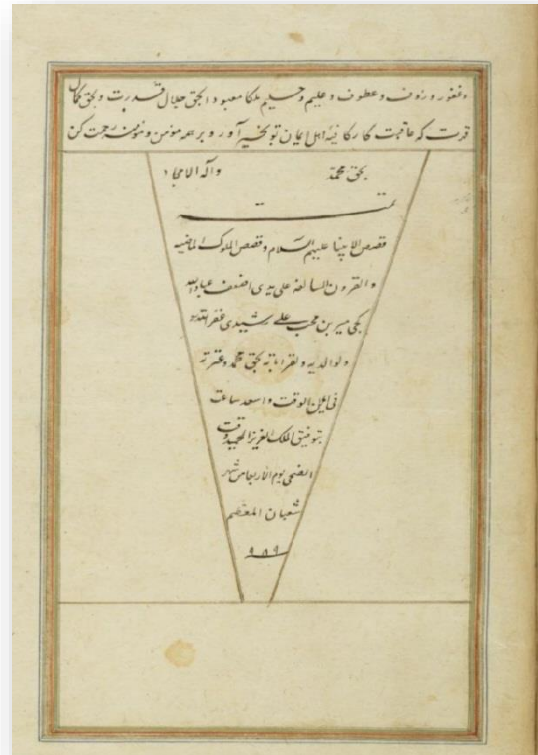 و غفور و رؤف و عطوف و علیم و حلیم ملکا معبودا بحق جلال قدرت و بحق کمال
قدرت که عاقبت کار کافه اهل ایمان تو بخیر آور و بر همه مومن و مومنه رحمت کن
بحق محمد و آله الامجاد
تمت
قصص الانبیا علیهم السلام و قصص الملوک الماضیه
و القرون السالفه علی یدی اضعف عباد الله
میر بن محب علی رشیدی غفر الله
و لوالدیه و لقراباته بحق محمد و عترته
فی ایمن الوقت و اسعد ساعت
بتوفیق الملک العزیز الحمید وقت
الضحی یوم الاربعا من شهر
شعبان المعظم
۹۸۹